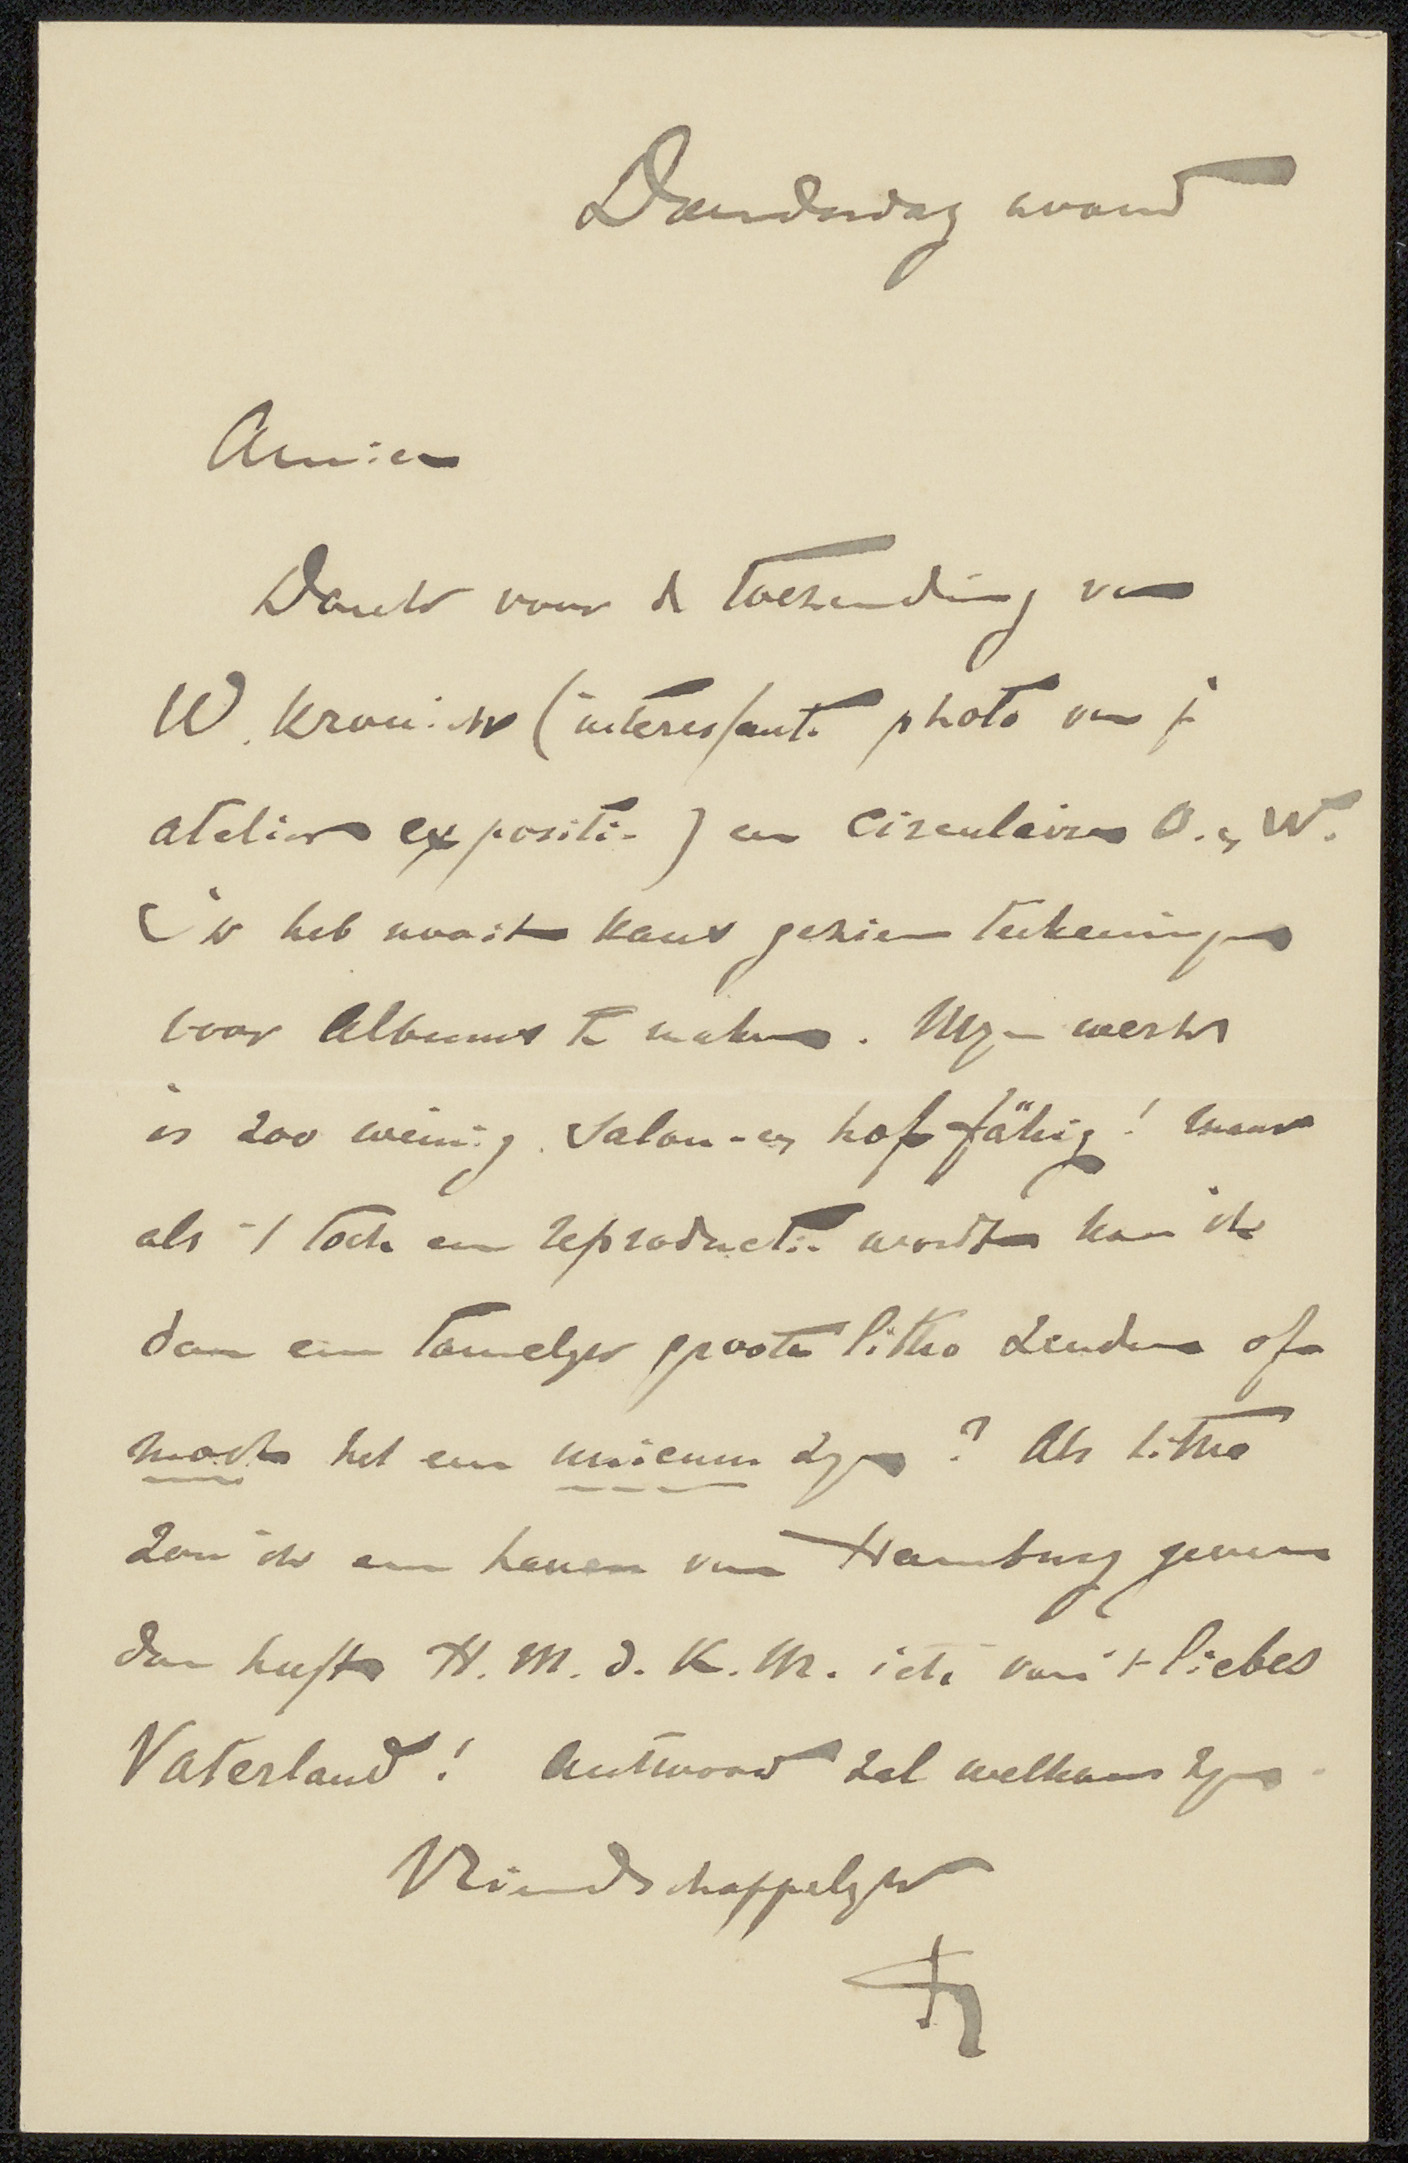 Donderdag avond
Amice
Dank voor de toezending van
W. Kroniek (interessante photo van je
atelier expositie) en circulaire O. en W.
Ik heb nooit kans gezien teekeningen
voor Albums te maken. Mijn werk
is zoo weinig salon- en hoffähig! maar
als 't toch een reproductie wordt kan ik
dan een tamelijk groote litho zenden of
moet het een unicum zijn? Als litho
zou ik een haven van Hamburg geven
dan heeft H. M. d. K. M. iets van 't liebes
Vaterland! Antwoord zal welkom zijn.
Vriendschappelijk